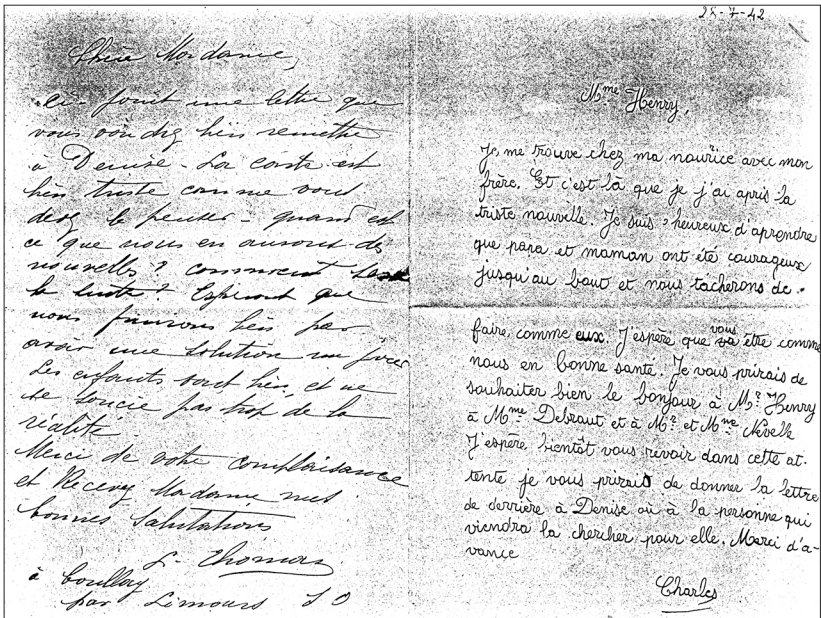 Chère Madame,
ci-joint une lettre que
vous voudrez bien remettre
à Denise - La carte est
bien triste comme vous
devez le penser - quand est
ce que nous en aurons des
nouvelles? comment sera
la lutte? Espérons que
nous finirons bien par
avoir une solution un jour
Les enfants sont bien, et ne
se soucie pas trop de la
réalité
Merci de votre complaisance
et Recevez Madame mes
bonnes Salutations
L. Thomas
à Boullay
par Limours S O
25-7-42
Mme Henry,
Je, me trouve chez ma nourice avec mon
frère. Et c'est là que je j'ai apris la
triste nouville. Je suis heureux d'aprendre
que papa et maman ont été courageux
jusqu'au bout et nous tâcherons de
faire, comme eux. J'espère que vous être comme
nous en bonne santé. Je vous prirais de
souhaiter bien le bonjour à Mr Henry
à Mme Debraut et à Mr et Mme
J'espère, bientôt vous revoir dans cette at-
tente je vous prirais de donner la lettre
de derrière à Denise où à la personne qui
viendra la chercher pour elle. Merci d'a-
vance
Charles